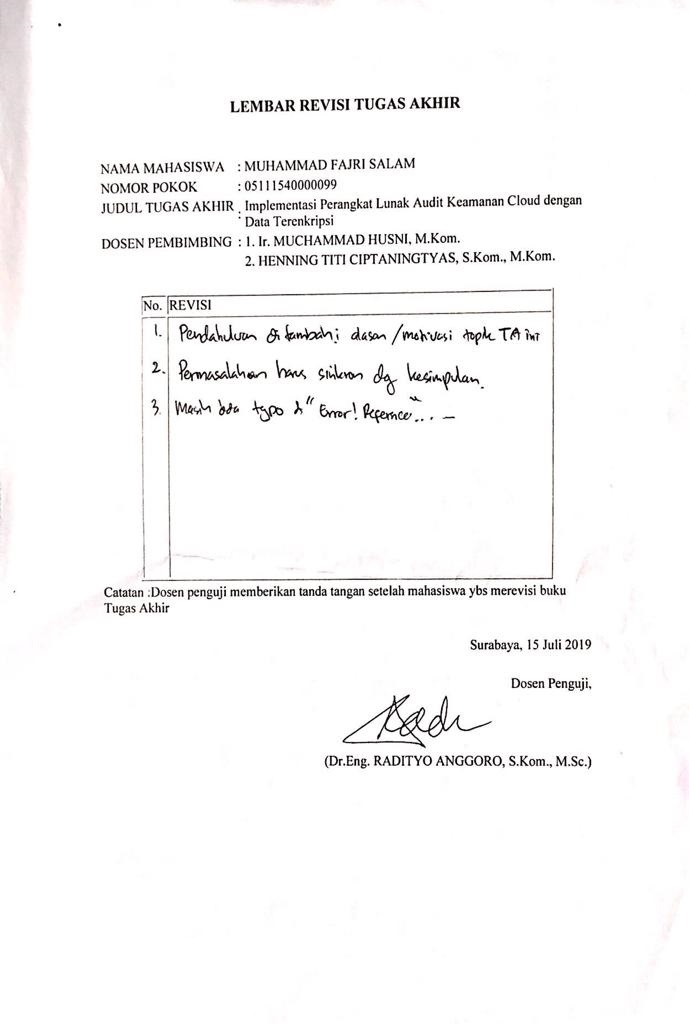 LEMBAR REVISI TUGAS AKHIR
NAMA MAHASISWA : MUHAMMAD FAJRI SALAM
NOMOR POKOK : 05111540000099
JUDUL TUGAS AKHIR : Implementasi Perangkat Lunak Audit Keamanan Cloud dengan
Data Terenkripsi
DOSEN PEMBIMBING : 1. Ir. MUCHAMMAD HUSNI, M.Kom.
2. HENNING TITI CIPTANINGTYAS, S.Kom., M.Kom.
No. REVISI
1. Pendahuluan ditambahi alasan/motivasi topik TA ini
2. Permasalahan harus sinkron dg kesimpulan.
3. Masih ada typo & "Error! Refernce"...
Catatan :Dosen penguji memberikan tanda tangan setelah mahasiswa ybs merevisi buku
Tugas Akhir
Surabaya, 15 Juli 2019
Dosen Penguji,
(Dr.Eng. RADITYO ANGGORO, S.Kom., M.Sc.)